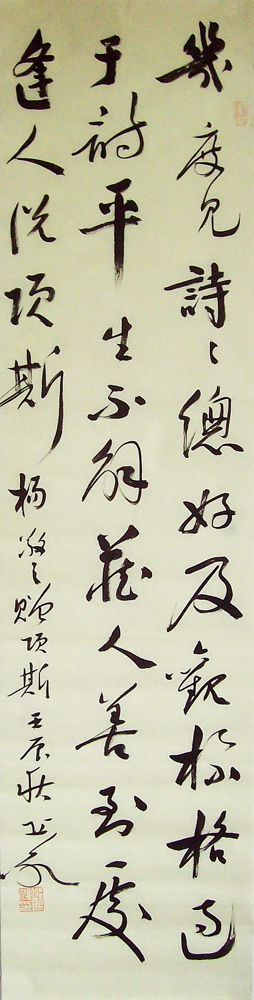 幾度見詩詩總好及觀標格過
于詩平生不解藏人善到處
逢人說項斯 楊敬之贈項斯 壬辰秋